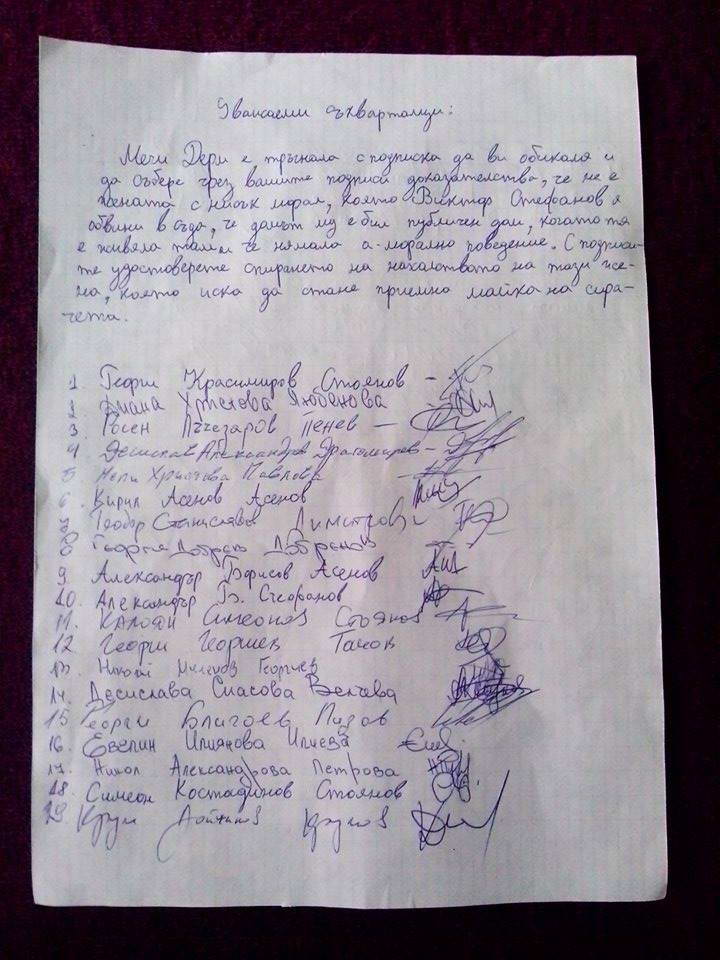 Уважаеми съкварталци:
Мечи Дери е тръгнала с подписка да ви обикаля и
да събере чрез вашите подписи доказателства, че не е
жената с нисък морал, която Виктор Стефанов я
обвини в съда, че домът му е бил публичен дом, когато тя
е живяла там и че нямала а-морално поведение. С подписи-
те удостоверете спирането на нахалството на тази же-
на, която иска да стане приемна майка на сира-
чета.
1. Георги Красимиров Стоянов -
2. Диана Христова Любенова
3. Росен Лъчезаров Пенев -
4. Десислав Александров Драгомиров -
5. Нели Христова Павлова
6. Кирил Асенов Асенов
7. Теодор Станиславов Димитров
8. Георги Добрев
9. Александър Борисов Асенов
10. Александър Б. Стефанов
11. Калоян Симеонов Стоянов
12 Георги Георгиев Танов
13. Николай Георгиев
14. Десислава Спасова Велчева
15 Георги Благоев
16. Евелин Илиянова Илиева
17. Никол Александрова Петрова
18. Симеон Костадинов Стоянов
19 Крум Крумов